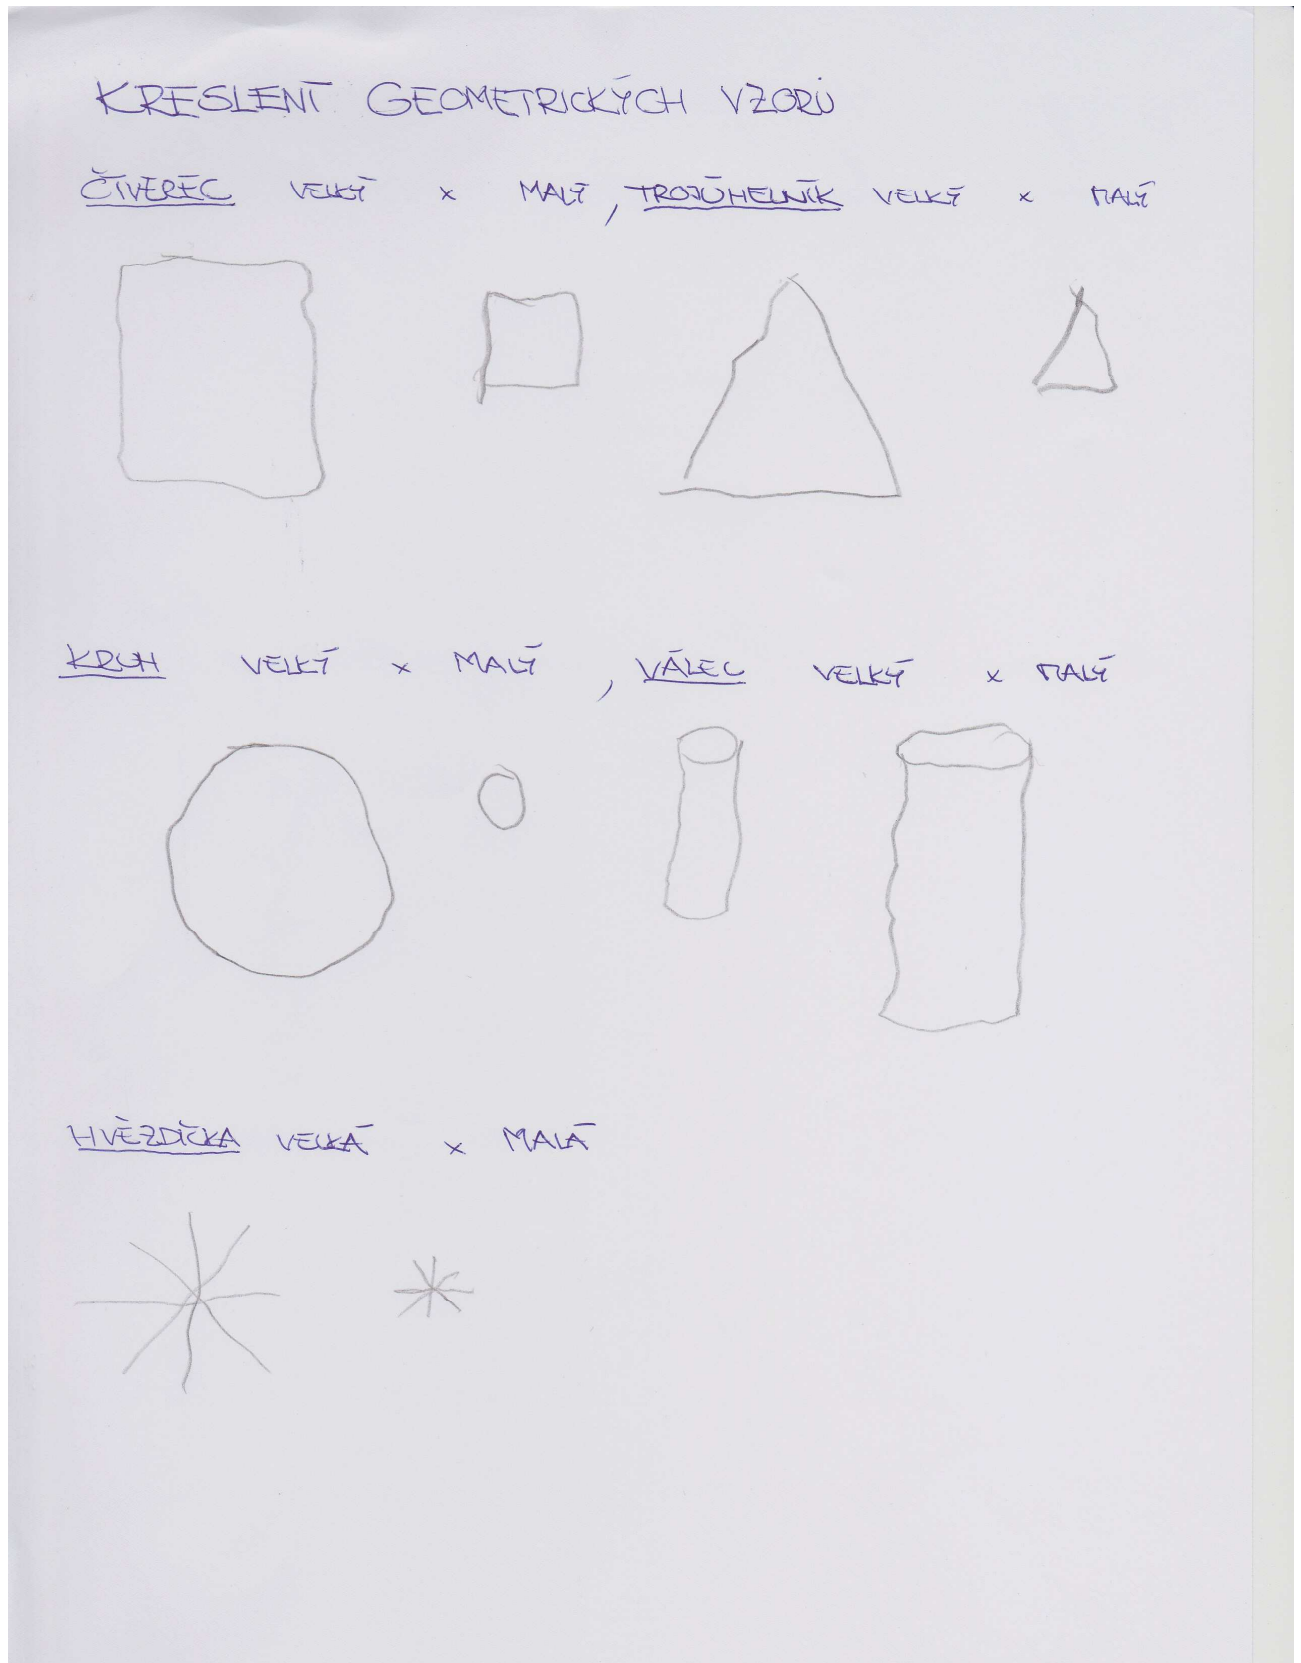 KRESLENÍ GEOMETRICKÝCH VZORŮ
ČTVEREC VELKÝ x MALÝ, TROJÚHELNÍK VELKÝ x MALÝ
KRUH VELKÝ x MALÝ, VÁLEC VELKÝ x MALÝ
HVĚZDIČKA VELKÁ x MALÁ